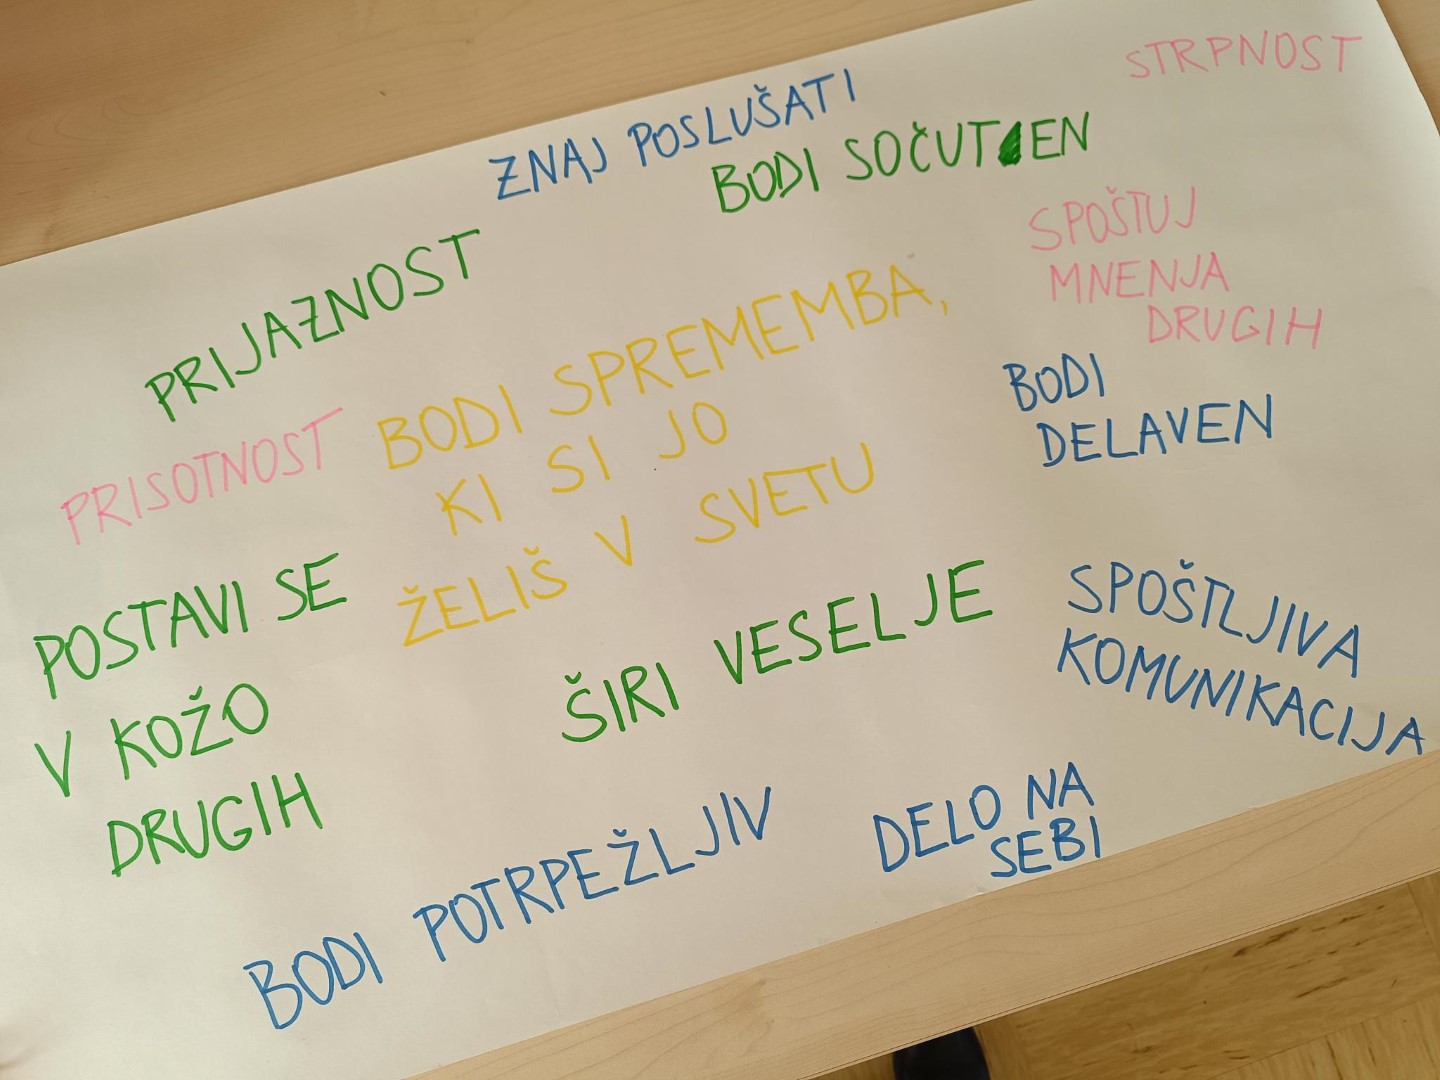 STRPNOST
ZNAJ POSLUŠATI
BODI SOČUTEN
SPOŠTUJ
MNENJA
DRUGIH
PRIJAZNOST
BODI SPREMEMBA,
KI SI JO
ŽELIŠ V SVETU
BODI
DELAVEN
PRISOTNOST
POSTAVI SE
V KOŽO
DRUGIH
ŠIRI VESELJE
SPOŠTLJIVA
KOMUNIKACIJA
BODI POTRPEŽLJIV
DELO NA
SEBI